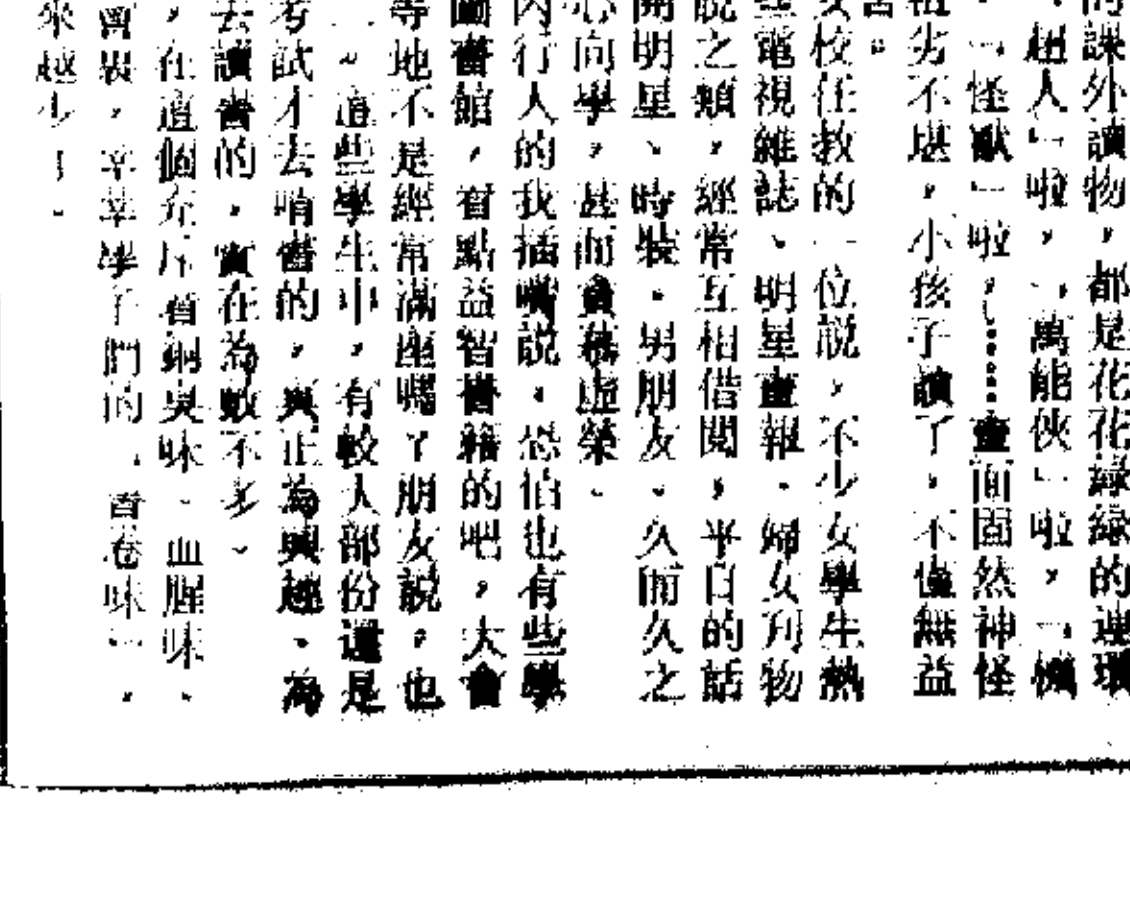 的課外讀物，都是花花綠綠的連環
、「超人」啦，「萬能俠」啦，「機
「怪獸」啦，……畫面固然神怪
粗劣不堪，小孩子讀了，不僅無益
害。
女校任教的一位說，不少女學生熱
電視雜誌、明星畫報、婦女刊物
說之類，經常互相借閱，平日的話
開明星、時裝、男朋友、久而久之
心向學，甚而貪慕虛榮。
內行人的我插嘴說，恐怕也有些學
圖書館，看點益智書籍的吧，大會
等地不是經常滿座嗎？朋友說，也
。這些學生中，有較大部份還是
考試才去啃書的，真正為興趣、為
去讀書的，實在為數不多。
，在這個充斥着銅臭味、血腥味、
會裏，莘莘學子們的「書卷味」，
來越少了。